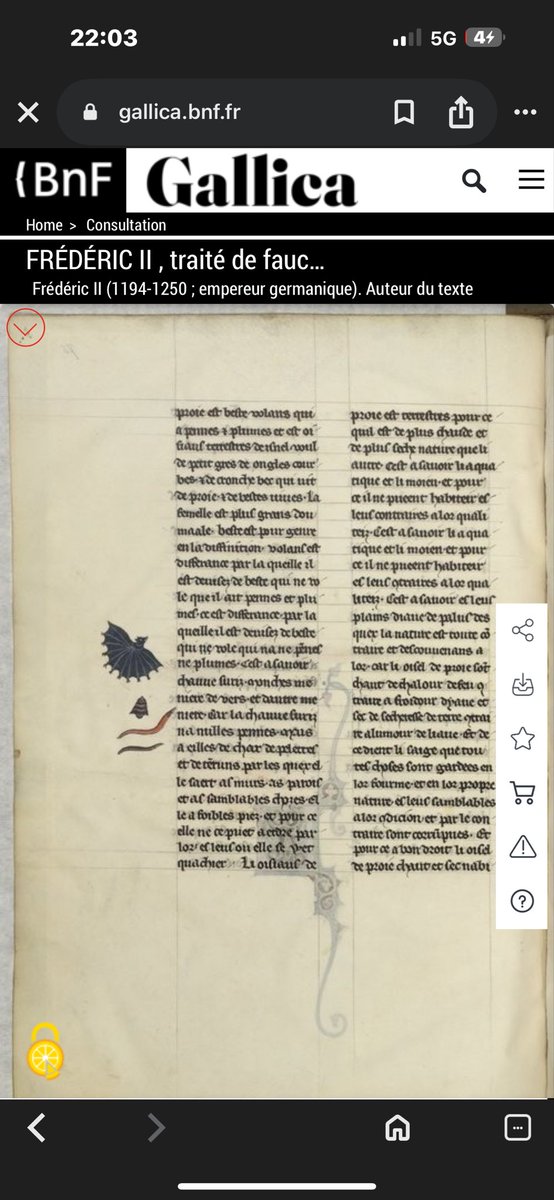 22:03
5G
4
gallica.bnf.fr
{BnF Gallica
Home > Consultation
FRÉDÉRIC II , traité de fauc...
Frédéric II (1194-1250 ; empereur germanique). Auteur du texte
proie est beste volans qui
a pennes & plumes et est oi
siaus terrestres
de petit gres de ongles cour
bes & de cronche bec qui uit
de proie & de bestes uiues. La
femelle est plus grans dou
maale. beste est pour genre
en la diffinition. volans est
differance par la queille il
est deuisez de beste qui ne vo
le que il ait pennes et plu
mes. ce est differance par la
queille il est deuisez de beste
qui ne vole qui na ne pennes
ne plumes. Cest a sauoir
chauue suriz mouches me
niere de vers. et dautre me
niere. Car la chauue suriz
na nulles pennes
a eilles de char
et de par les
le saert as murs. as parois
et as samblables choses. el
le a foibles piez. et pour ce
elle ne ce puet par
lor. es leus ou elle se
quachier. Li oisiaus de
proie est terrestres pour ce
quil est de plus chaude et
de plus seche nature que li
autre. Cest a sauoir li aqua
tique et li moien. et pour
ce il ne pueent habiteir es
leus contraires a lor quali
teiz. Cest a sauoir li aqua
tique et li moien et pour
ce il ne pueent habiteir
es leus qtraires a lor qua
liteiz. Cest a sauoir es leus
plains diaue de palus des
quez la nature est toute cō
traire et descouuenans a
lor. car li oisel de proie sōt
chaut de chalour de feu q̄
traire a froidour diaue et
sec de secheresse de terre qtrai
re a lumour de liaue. Et de
ce dient li saige que tou
tes choses sont gardees en
lor fourme. et en lor propre
nature. es leus samblables
a lor qdicion. et par le con
traire sont corrūpues. Et
pour ce a bon droit li oisel
de proie chaut et sec nabi